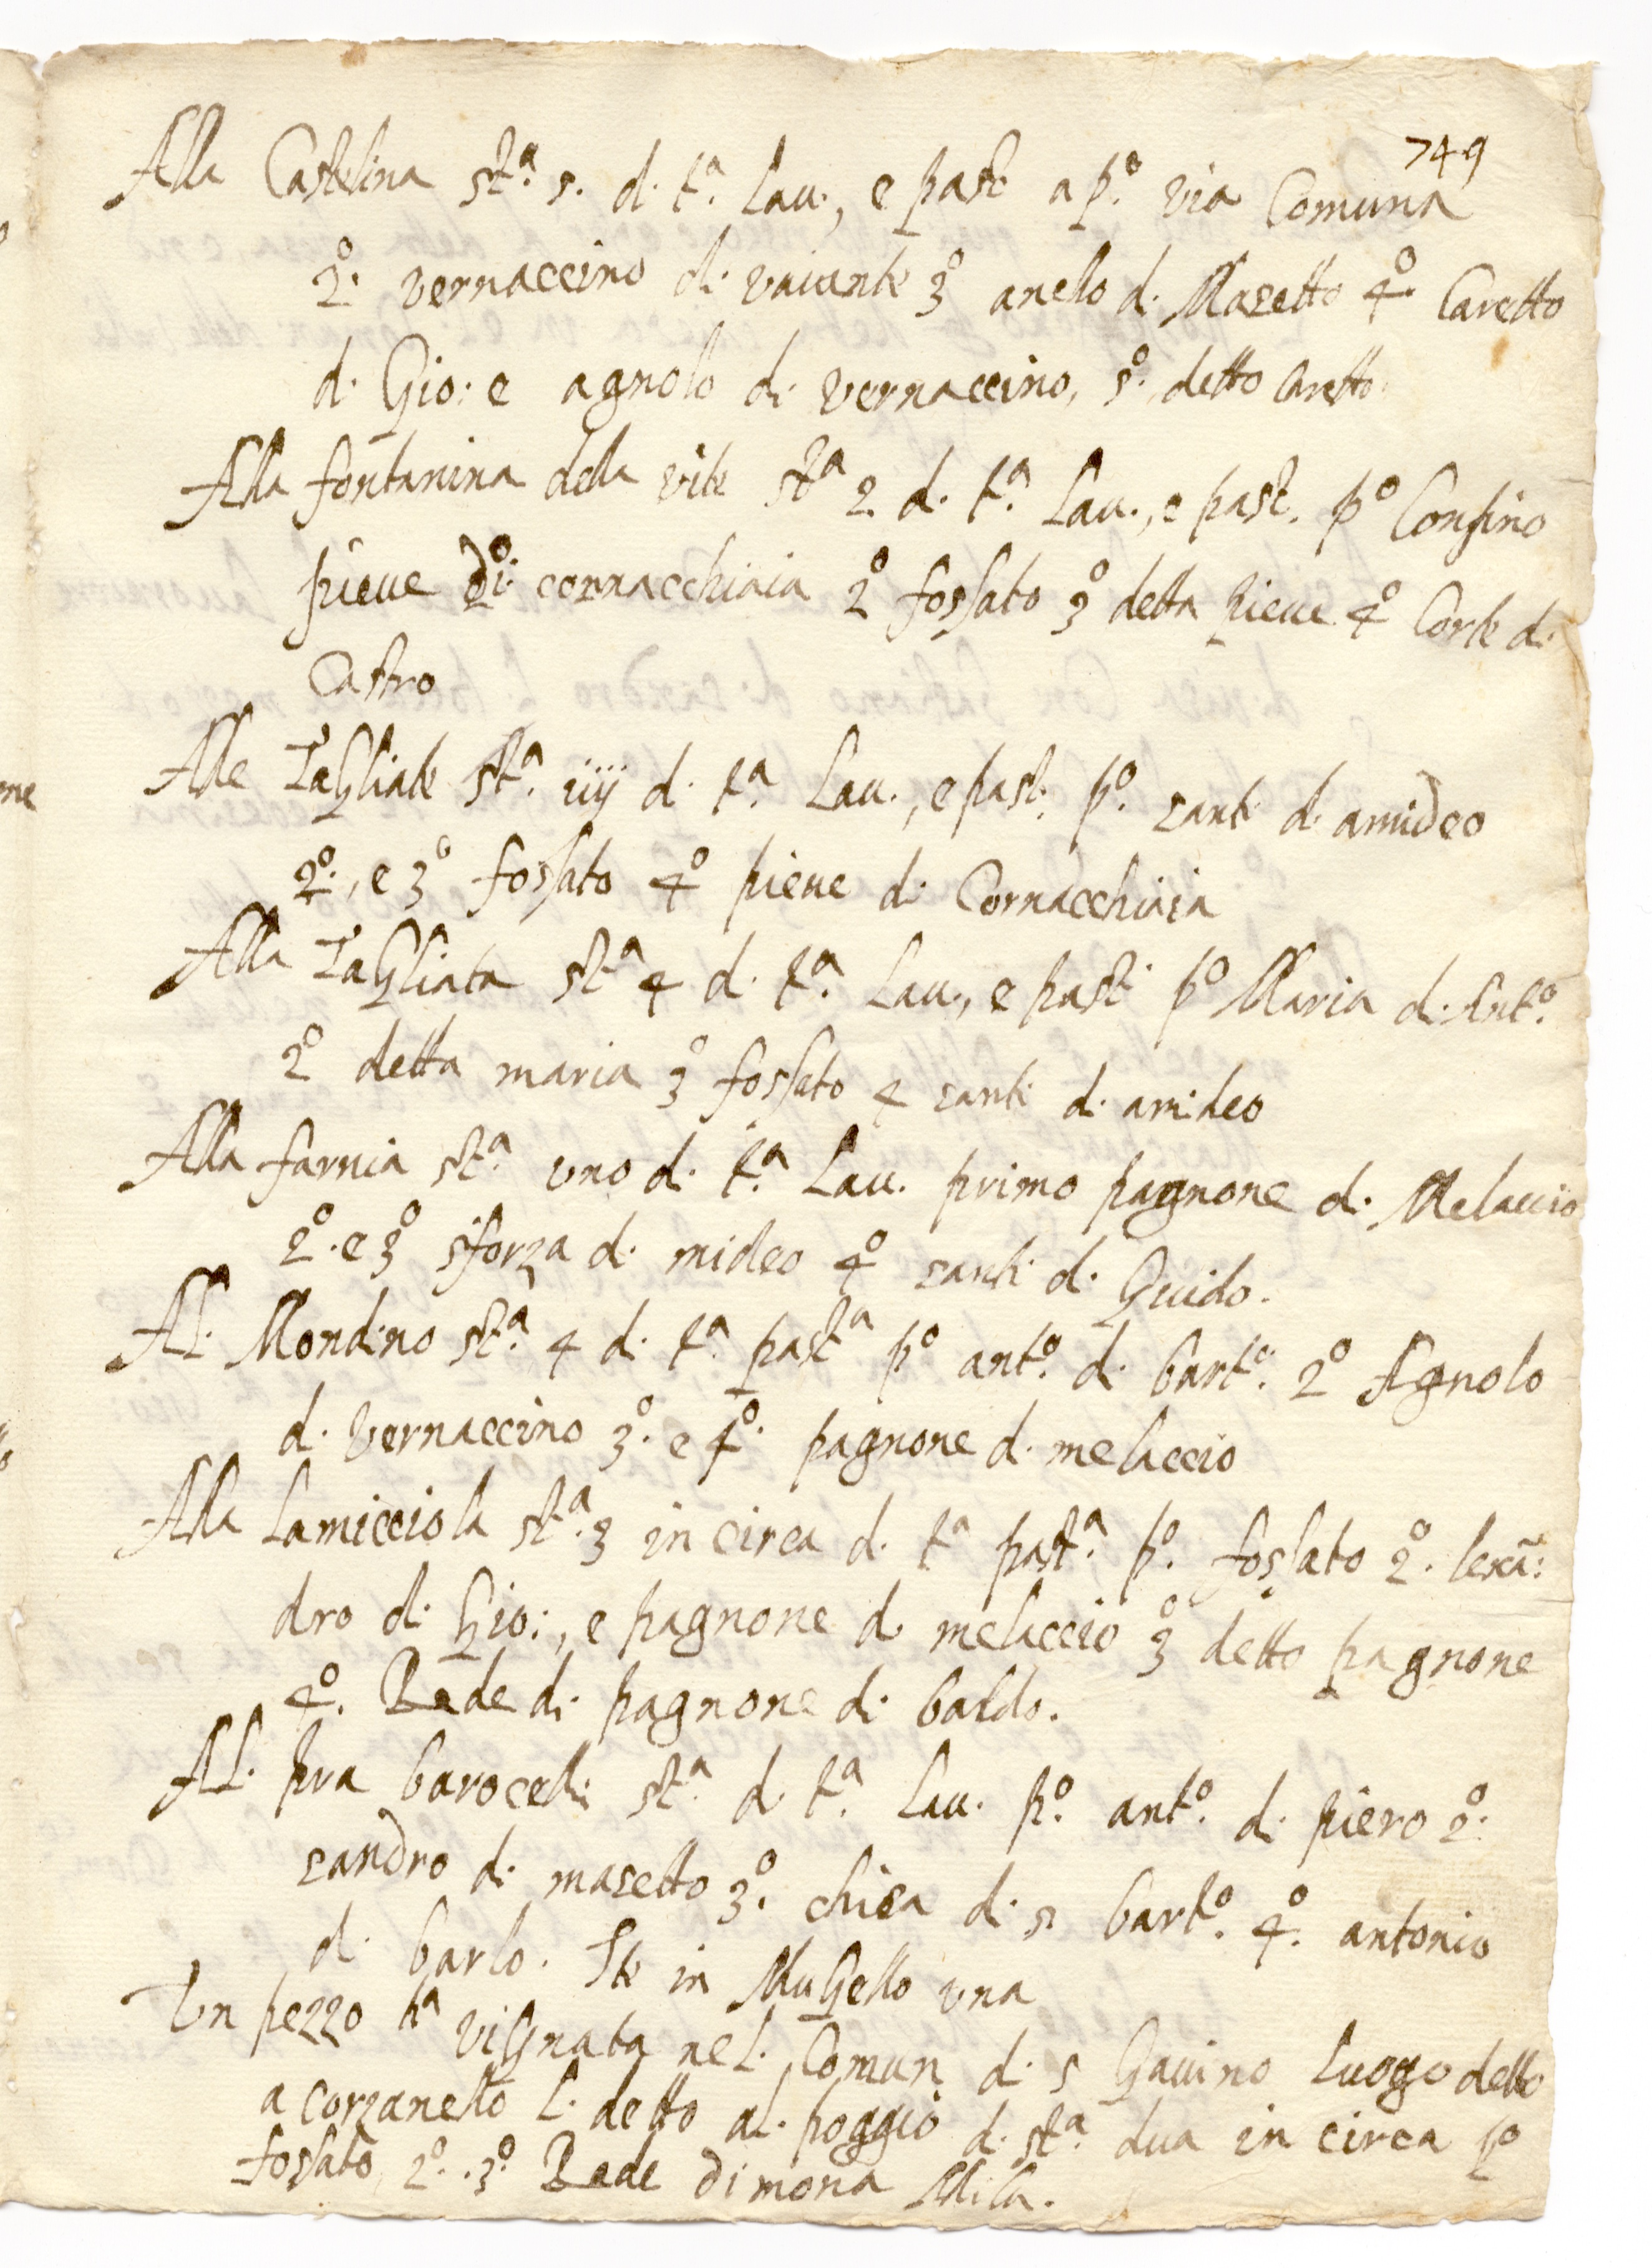 749
Alla Castelina st.ª 5. d. t.ª Lau., e past a p.º via Comuna
2.º vernaccino di vaiante 3º anelo d. Masetto 4º Caretto
d. Gio: e agnolo di vernaccino, 5.º detto Caretto
Alla fontanina della vite st.ª 2 d. t.ª Lau., e past. pº Confino
pieue di cornacchiaia 2º fossato 3º detta pieue 4º Corte d.
Castro
Alle TaGliate st.ª iiij d. t.ª Lau., e past. p.º santi d. amideo
2.º, e 3º fossato 4º pieue di Cornacchiaia
Alla TaGliata stª 4 d. t.ª Lau., e past. pº Maria d. Ant.º
2º detta maria 3º fossato 4 santi d. amideo
Alla farnia st.ª uno d. t.ª Lau. primo pagnone d. Melaccio
2º. e 3º sforza d. mideo 4º santi d. Guido.
Al. Mondino st.ª 4 d. t.ª pastª pº ant.º d. bart.º 2º Agnolo
d. vernaccino 3.º e 4.º pagnone d. melaccio
Alla Lamicciola st.ª 3 in circa d. tª past.ª p.º fossato 2.º lesã:
dro di Gio:, e pagnone d. melaccio 3º detto pagnone
4º. Rede di pagnone di baldo.
Al. pra barocelli st.ª d. t.ª Lau. p.º ant.º d. piero 2.º
sandro di masetto 3.º chiesa di s bart.º 4.º antonio
d. barlo. Ite in MuGello una
Un pezzo tª viGnata nel. Comun d. s Gauino Luogo detto
a corzanello l. detto al. poggio d. st.ª dua in circa pº
fossato, 2.º. 3.º Rede di mona Mila.